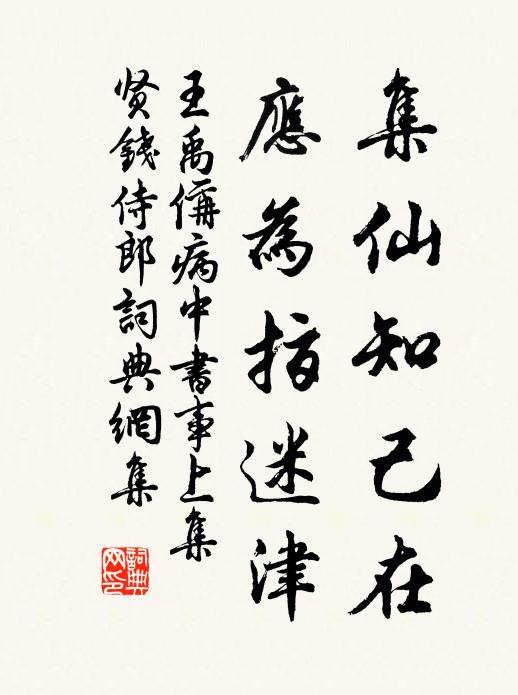 集仙知己在
應為指迷津
王禹偁病中書事上集
贤錢侍郎詞典網集
詞典網印